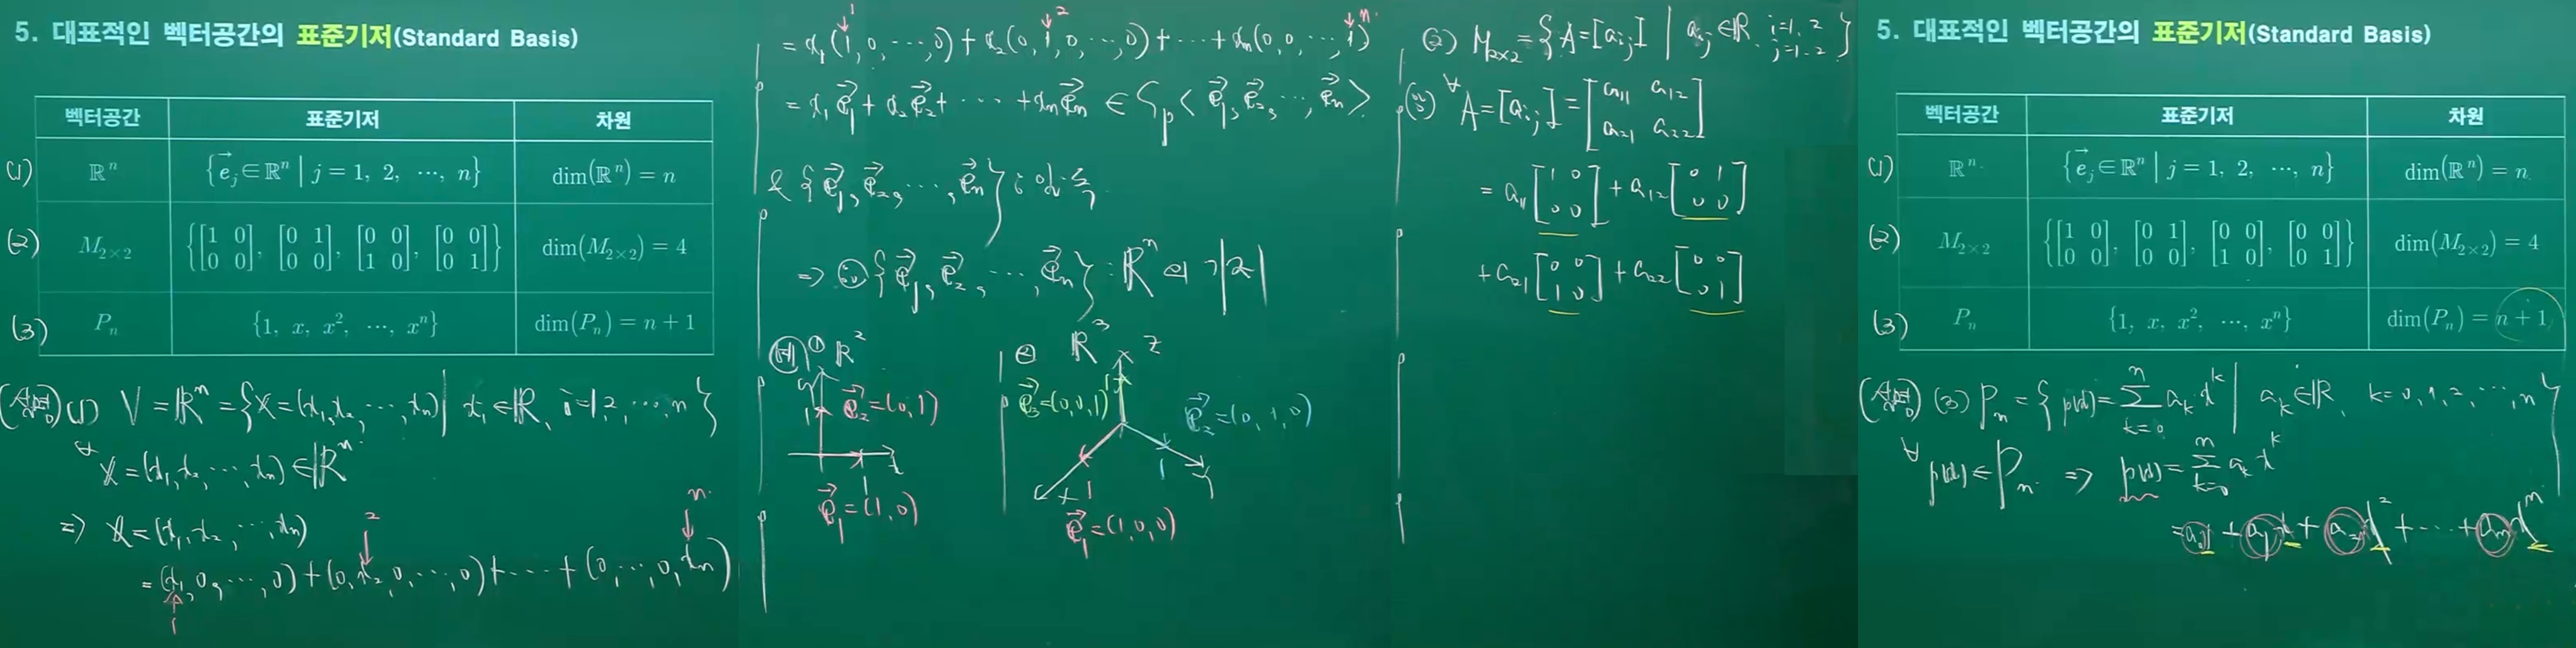 5. 대표적인 벡터공간의 표준기저(Standard Basis)
벡터공간 표준기저 차원
(1) ℝⁿ {e⃗ⱼ∈ℝⁿ | j = 1, 2, ⋯, n} dim(ℝⁿ) = n
(2) M₂ₓ₂ {[1 0; 0 0], [0 1; 0 0], [0 0; 1 0], [0 0; 0 1]} dim(M₂ₓ₂) = 4
(3) Pₙ {1, x, x², ⋯, xⁿ} dim(Pₙ) = n + 1
(1) V = ℝⁿ = {x = (x₁, x₂, ⋯, xₙ) | xᵢ ∈ ℝ, i = 1, 2, ⋯, n}
∀x = (x₁, x₂, ⋯, xₙ) ∈ ℝⁿ
⇒ x = (x₁, x₂, ⋯, xₙ)
2 n
= (x₁, 0, ⋯, 0) + (0, x₂, 0, ⋯, 0) + ⋯ + (0, ⋯, 0, xₙ)
1
1 2 n
= x₁(1, 0, ⋯, 0) + x₂(0, 1, 0, ⋯, 0) + ⋯ + xₙ(0, 0, ⋯, 1)
= x₁e⃗₁ + x₂e⃗₂ + ⋯ + xₙe⃗ₙ ∈ Sp<e⃗₁, e⃗₂, ⋯, e⃗ₙ>
& {e⃗₁, e⃗₂, ⋯, e⃗ₙ} : 일차독립
⇒ ∴ {e⃗₁, e⃗₂, ⋯, e⃗ₙ} : ℝⁿ의 기저
① ℝ²
y
1 e⃗₂ = (0, 1)
1 x
e⃗₁ = (1, 0)
② ℝ³ z
e⃗₃ = (0, 0, 1) 1
e⃗₂ = (0, 1, 0)
1 y
x 1
e⃗₁ = (1, 0, 0)
(2) M₂ₓ₂ = {A = [aᵢⱼ] | aᵢⱼ ∈ ℝ, i = 1, 2 j = 1, 2}
∀A = [aᵢⱼ] = [a₁₁ a₁₂; a₂₁ a₂₂]
= a₁₁[1 0; 0 0] + a₁₂[0 1; 0 0]
+ a₂₁[0 0; 1 0] + a₂₂[0 0; 0 1]
5. 대표적인 벡터공간의 표준기저(Standard Basis)
벡터공간 표준기저 차원
(1) ℝⁿ {e⃗ⱼ∈ℝⁿ | j = 1, 2, ⋯, n} dim(ℝⁿ) = n
(2) M₂ₓ₂ {[1 0; 0 0], [0 1; 0 0], [0 0; 1 0], [0 0; 0 1]} dim(M₂ₓ₂) = 4
(3) Pₙ {1, x, x², ⋯, xⁿ} dim(Pₙ) = n + 1
(3) Pₙ = {p(x) = Σₖ₌₀ⁿ aₖxᵏ | aₖ ∈ ℝ, k = 0, 1, 2, ⋯, n}
∀p(x) ∈ Pₙ ⇒ p(x) = Σₖ₌₀ⁿ aₖxᵏ
= a₀1 + a₁x + a₂x² + ⋯ + aₙxⁿ